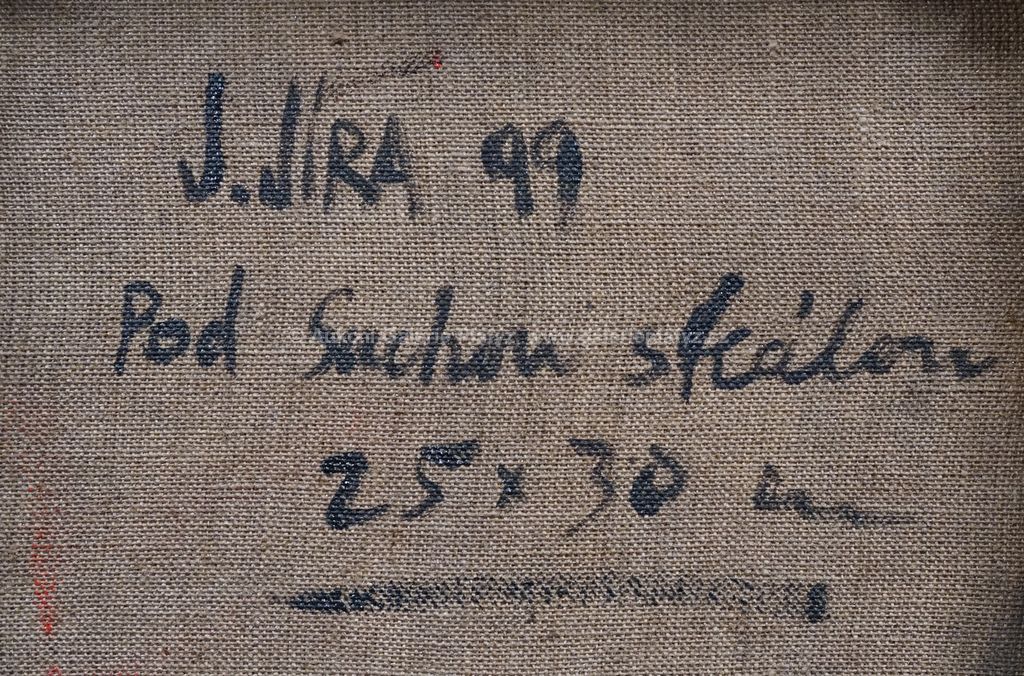 J. JÍRA 99
Pod Suchou skálou
25 x 30 cm